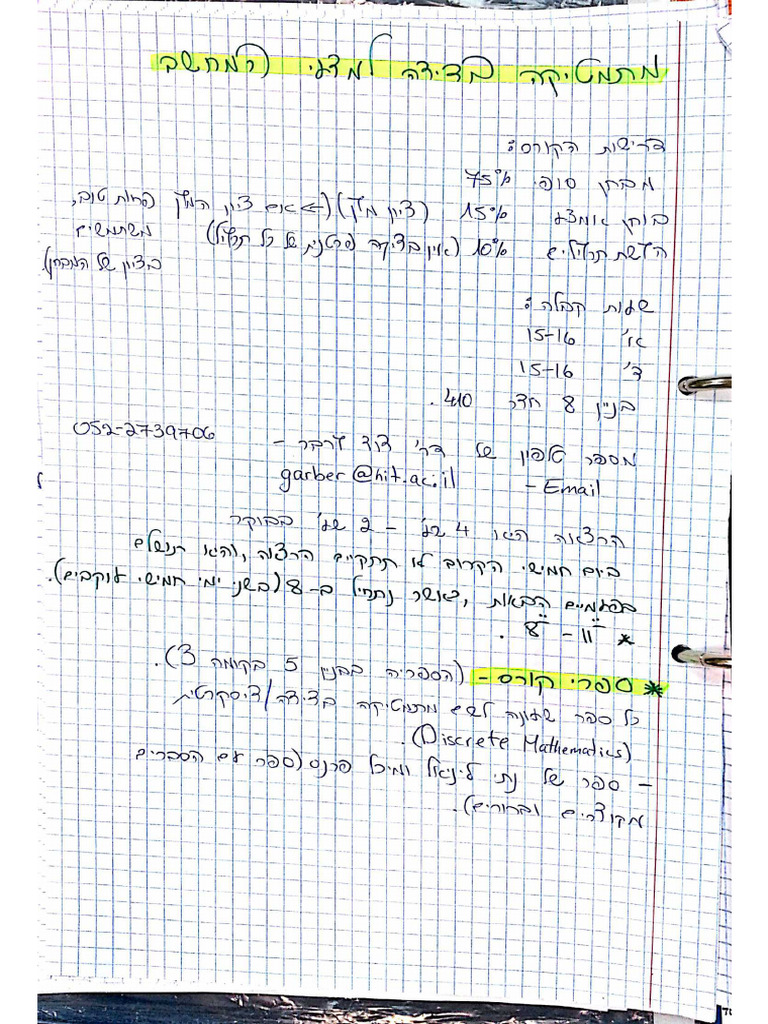 מתמטיקה בדידה למדעי המחשב
דרישות הקורס:
מבחן סופי 75%
בוחן אמצע 15% (ציון מגן) (← אם ציון הבוחן פחות טוב,
הגשת תרגילים 10% (אין בדיקה פרטנית של כל תרגיל) משתמשים
בציון של המבחן)
שעות קבלה:
א' 15-16
ד' 15-16
בניין 8 חדר 410.
מספר טלפון של דר' דוד גרבר - 052-2739706
Email - garber@hit.ac.il
הרצאה היא 4 שע' - 2 שע' בבוקר
ביום חמישי הקרוב לא תתקיים הרצאה, והיא תושלם
בפעמיים הבאות, כאשר נתחיל ב-8 (בשני ימי חמישי עוקבים).
* 8 - 11.
* ספרי קורס - (הספריה בבניין 5 בקומה 3).
כל ספר שעונה לשם מתמטיקה בדידה/דיסקרטית
(Discrete Mathematics).
- ספר של נתי ליניאל ומיכל פרנס (ספר עם הסברים
מקוצרים וברורים).